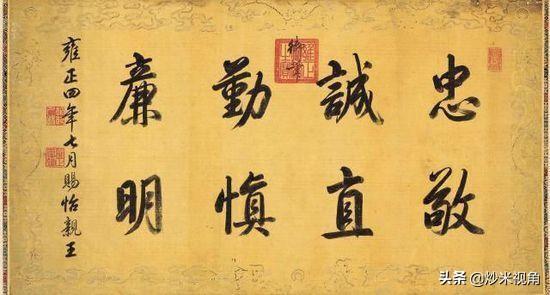 忠敬
誠直
御筆
勤慎
廉明
雍正四年七月賜怡親王
头条 @炒米视角